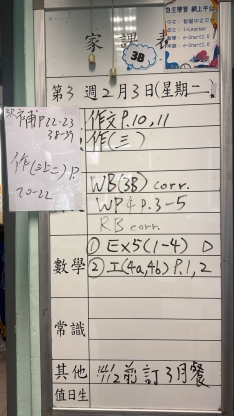 家課表
自主學習 網上平台
3B
第3週2月3日(星期一)
補P.22-23
38-39
作(三上二)P.
20-22
作文P.10,11
作(三)
WB(3B) corr.
WP4 P.3-5
RB corr.
數學
① EX5(1-4) D
② 工(4a,4b) P.1,2
常識
其他
14/2前訂3月餐
值日生